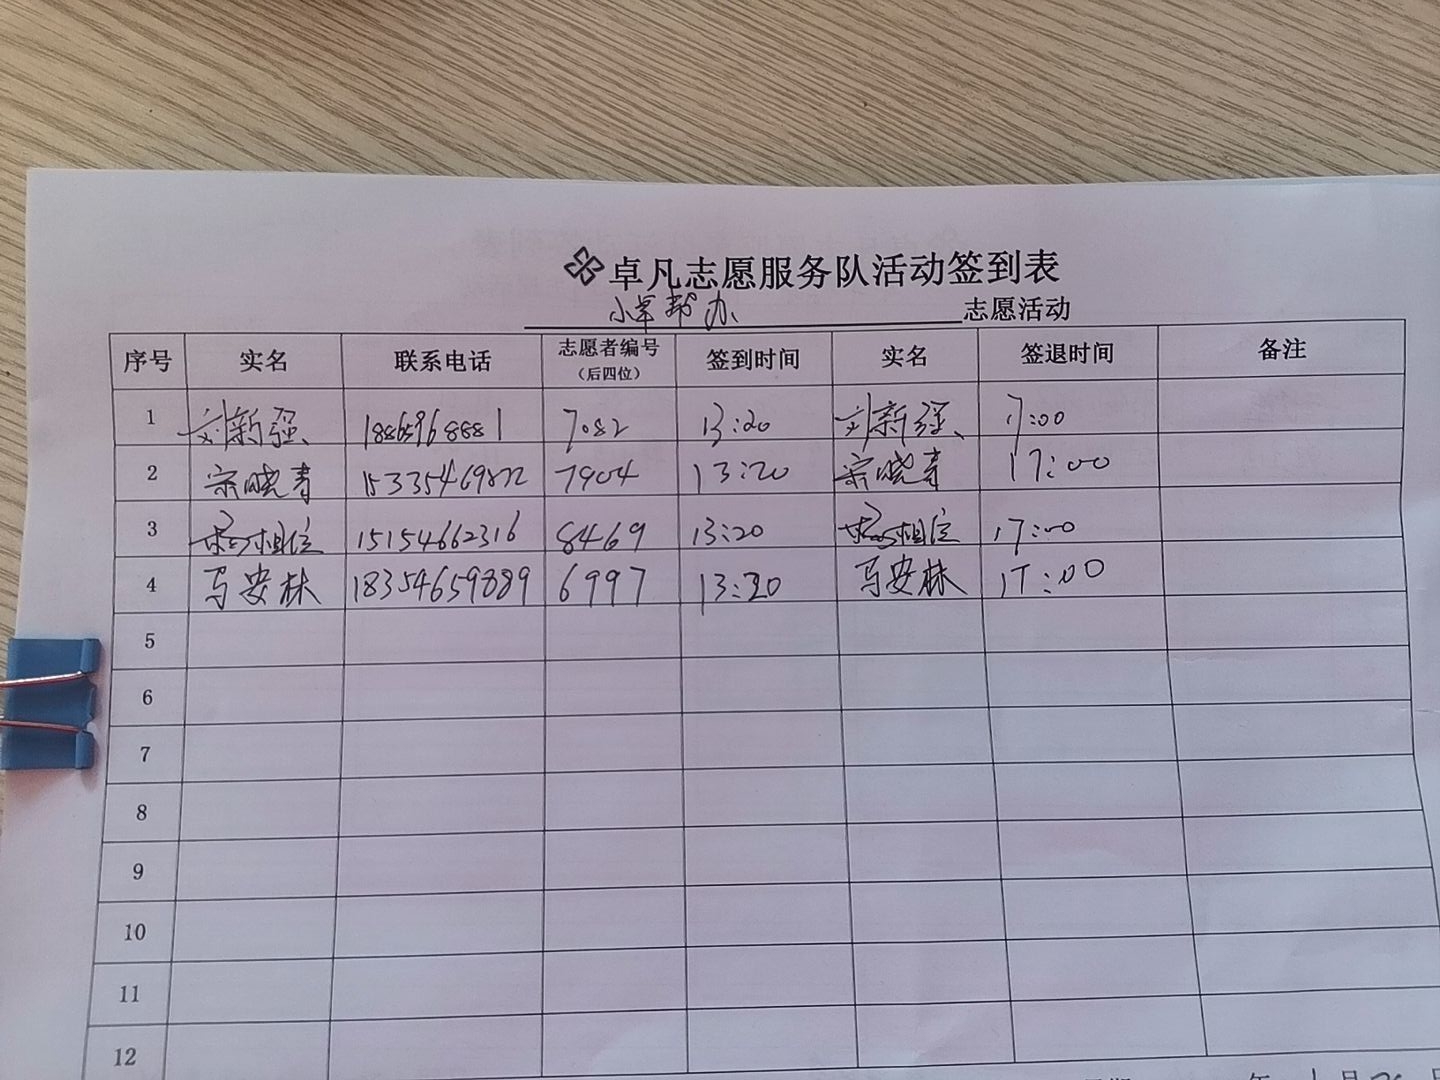 卓凡志愿服务队活动签到表
小卓帮办 志愿活动
序号 实名 联系电话 志愿者编号（后四位） 签到时间 实名 签退时间 备注
1 刘新强 18865968881 7082 13:20 刘新强 17:00
2 宗晓青 7904 13:20 宗晓青 17:00
3 15154662316 8469 13:20 17:00
4 马安林 18354659889 6997 13:20 马安林 17:00
5
6
7
8
9
10
11
12